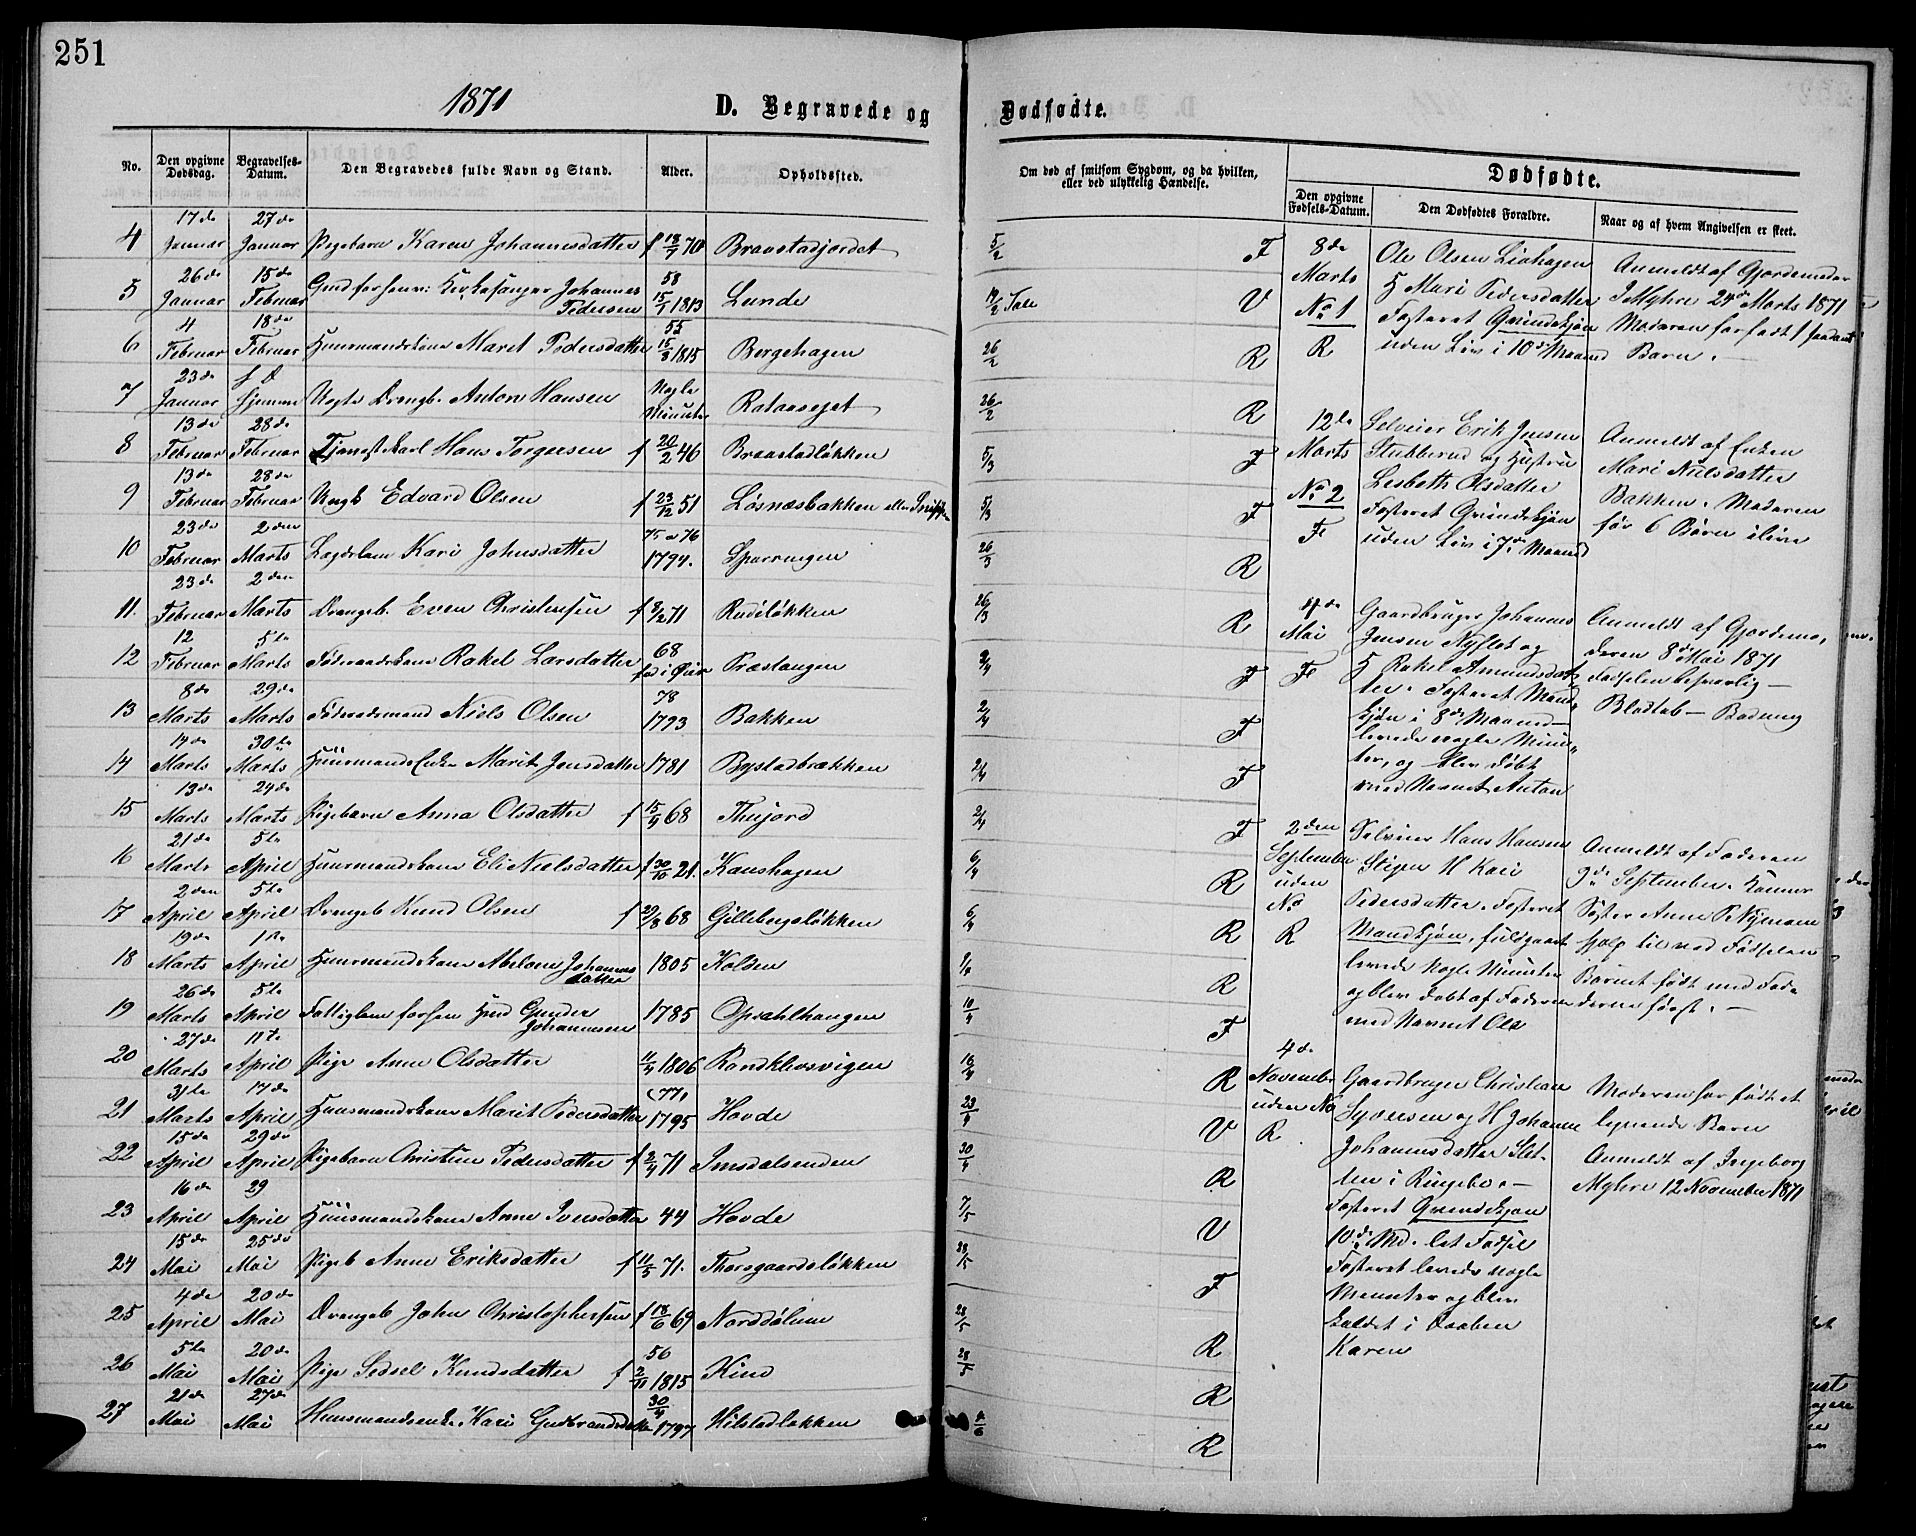 251
1871
D. Begravede og
No.
Den opgivne Dødsdag.
Begravelses-Datum.
Den Begravedes fulde Navn og Stand.
Alder.
Opholdssted.
4 17de Januar 27de Januar Pigebarn Karen Johannesdatter f 18/7 70 Braastadjordet
5 26de Januar 15de Februar Johannes Pedersen 58 15/1 1813 Lunde
6 4 Februar 18de Februar Huusmandskone Marit Pedersdatter 55 15/3 1815 Bergehagen
7 23de Januar Drengb. Anton Hansen Nogle Minuter
8 13de Februar 28de Februar Tjenestekarl Hans Torgersen f 20/2 46 Braastadløkken
9 13de Februar 28de Februar Edvard Olsen f 23/12 51 Løsnæsbakken eller
10 23de Februar 2den Marts Lægdslem Kari Johnsdatter 75 a 76 1794.
11. 23de Februar 2den Marts Drengeb. Even Christensen f 8/2 71 Rudsløkken
12 12 Februar 5te Marts Føderaadskone Rakel Larsdatter 68 Præstangen
13 8de Marts 29de Marts Føderaadsmand Niels Olsen 78 1793 Bakken
14 14de Marts 30te Marts Huusmands Enke Marit Jonsdatter 1781 Bystadbrækken
15 13de Marts 24de Marts Pigebarn Anna Olsdatter f 15/9 68 Thujord
16 21de Marts 5te April Huusmandskone Eli Nielsdatter f 30/10 21. Kaushagen
17 2den April 5te April Drengeb Knud Olsen f 29/8 68 Gillebergsløkken
18 19de Marts 1ste April Huusmandskone Abelone Johannesdatter 1805 Kolden
19 26de Marts 5te April Fattiglem Gunder Johannesen 1785 Opsahlhaugen
20 27de Marts 11te April Pige Anne Olsdatter 11/4 1806 Randklevsvigen
21 31te Marts 17de April Huusmandskone Marit Pedersdatter (77) 1795 Hovde
22 15de April 29de April Pigebarn Christine Pedersdatter f 2/4 71 Imsdalsenden
23 16de April 29 April Huusmandskone Anne Iversdatter 44 Hovde
24 15de Mai 25de Mai Pigeb Anne Eriksdatter f 11/5 71. Thorsgaardsløkken
25 4de April 20de Mai Drengeb John Christophersen f 18/6 69 Norddølum
26 5te Mai 20de Mai Pige Sedsel Knudsdatter 56 f 2/11 1815 Kind
27 21de Mai 27de Mai Huusmandsenke Kari Gudbrandsdatter 30/4 1797 Hilstadløkken
Dødfødte.
Om død af smitsom Sygdom, og da hvilken,
eller ved ulykkelig Hændelse.
Dødfødte.
Den opgivne Fødsels-Datum.
Den Dødfødtes Forældre.
Naar og af hvem Angivelsen er skeet.
5/2 F
12/2 V
26/2 R
26/2 R
5/3 F
5/3 F
26/3 R
26/3 R
2/4 F
2/4 F
2/4 F
2/4 F
6/4 R
6/4 R
R
10/4 F
16/4 R
23/4 V
30/4 R
7/5 V
28/5 F
28/5 R
28/5 R
R
8de Marts No 1 R
Ole Olsen Liahagen
H Mari Pedersdatter
Fosteret Qvindekjøn
uden Liv i 10de Maaned
Anmeldt af Gjordemoder
I Myhre 24de Marts 1871
Moderen før født 1 saadant
Barn. —
12te Marts No 2 F
Selveier Erik Jensen
Stubberud og Hustru
Lisbeth Olsdatter
Fosteret Qvindekjøn
uden Liv i 7de Maaned
Anmeldt af Enken
Mari Nielsdatter
Bakken. Moderen
før 6 Børn ilive
4de Mai F
Gaardbruger Johannes
Jensen Nyflot og
H Rakel Amundsdat-
ter. Fosteret Mand-
kjøn i 8de Maaned —
levede nogle Minu-
ter, og blev døbt
med Navnet Anton
Anmeldt af Gjordemo-
deren 8de Mai 1871
Fødselen besværlig —
Blodtab —
2den September uden No R
Selveier Hans Hansen
Stigen H Kari
Pedersdatter. Fosteret
Mandkjøn, fuldgaaet
levede Nogle Minuter
og blev døbt af Faderen
med Navnet Ole
Anmeldt af Faderen
9de September. Konens
Søster Anne P. Nymoen
hjalp til ved Fødselen
Barnet født med Fød-
derne først. —
4de November uden No R
Gaardbruger Christian
Syversen og H Johanne
Johannesdatter Slet-
ten i Ringebo —
Fosteret Qvindekjøn
10de Md. let Fødsel
Fosteret levede nogle
Minuter og blev
kaldet i Daaben
Karen
Moderen før født et
levende Barn
Anmeldt af Ingeborg
Myhre 12 November 1871